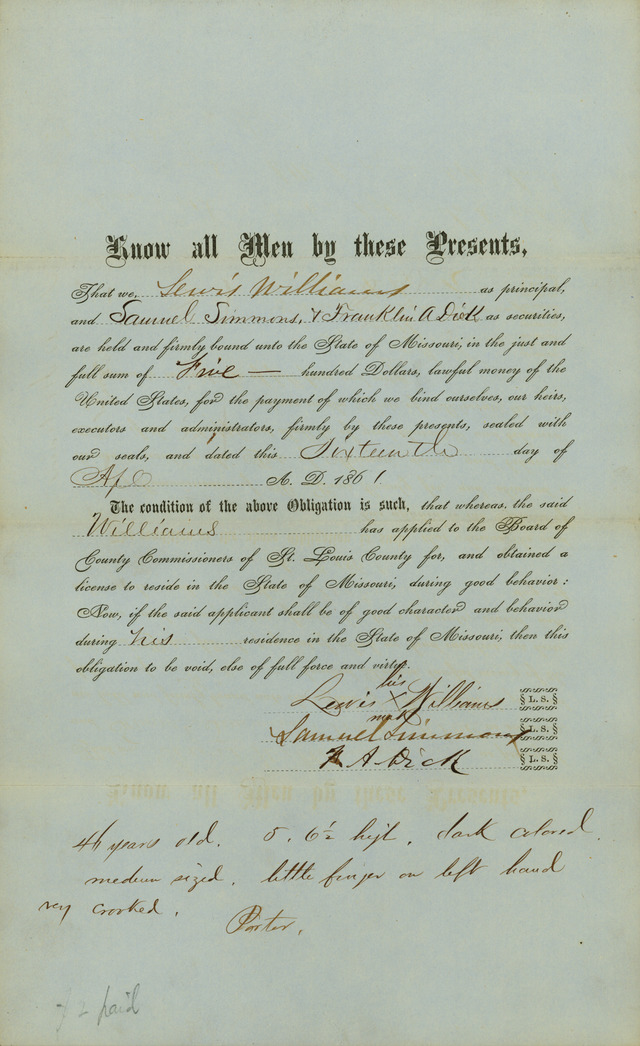 Know all Men by these Presents,
That we, Lewis Williams as principal,
and Samuel Simmons, & Franklin A Dick as securities,
are held and firmly bound unto the State of Missouri, in the just and
full sum of Five — hundred Dollars, lawful money of the
United States, for the payment of which we bind ourselves, our heirs,
executors and administrators, firmly by these presents, sealed with
our seals, and dated this Sixteenth day of
Apl A. D. 1861
The condition of the above Obligation is such, that whereas, the said
Williams has applied to the Board of
County Commissioners of St. Louis County for, and obtained a
license to reside in the State of Missouri, during good behavior:
Now, if the said applicant shall be of good character and behavior
during his residence in the State of Missouri, then this
obligation to be void, else of full force and virtue.
his
Lewis X Williams § L. S. §
mark
Samuel Simmons § L. S. §
F A Dick § L. S. §
46 years old. 5. 6½ high. dark colored.
medium sized. little finger on left hand
very crooked.
Porter.
2 paid